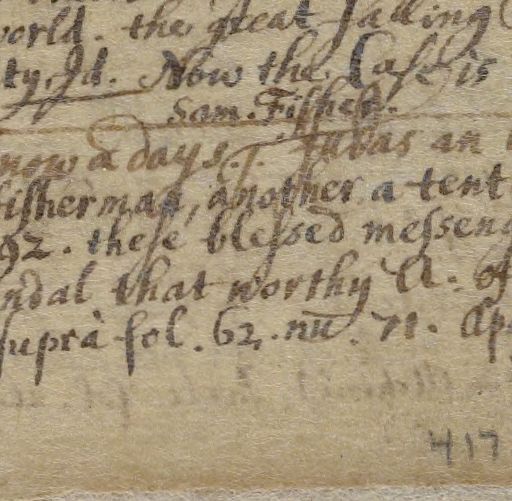 world. the great falling
ty. Id. Now the Case is
Sam. Fisher.
now a days. Jubas an
fisherman, another a tent
92. these blessed messeng
ndal that worthy A: of
suprà fol. 62. nu. 71. Ap
417